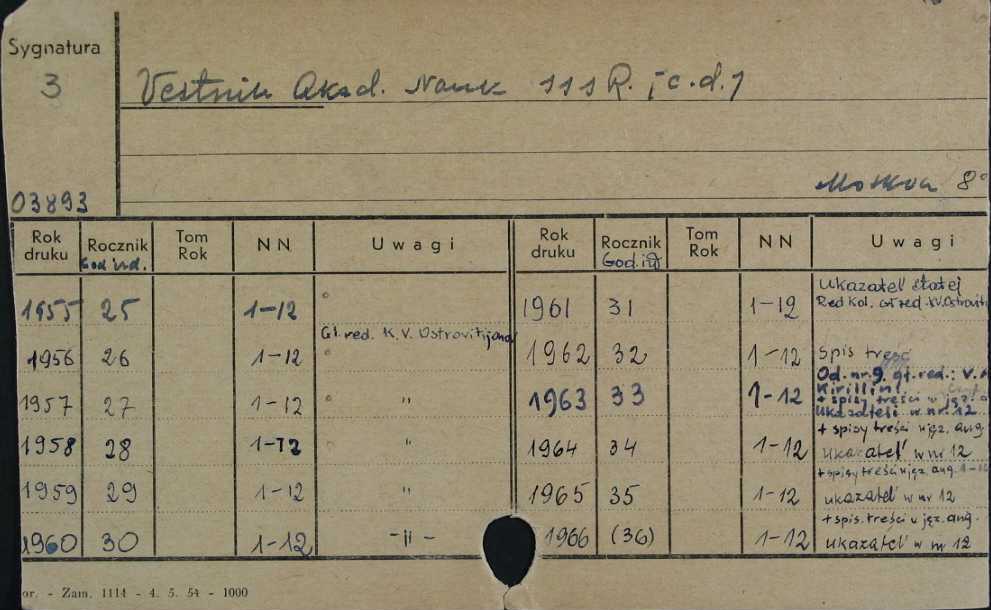 Sygnatura
3
Vestnik Akad. Nauk SSSR. [c.d.]
Moskva 8°
03893
Rok druku Rocznik God izd. Tom Rok NN Uwagi Rok druku Rocznik God. izd Tom Rok NN Uwagi
1955 25 1-12
1956 26 1-12 Gl. red. K. V. Ostrovitijanov
1957 27 1-12 "
1958 28 1-12 "
1959 29 1-12 "
1960 30 1-12 -"-
1961 31 1-12 Ukazatel' statej
Red Kol. Gł red. KV. Ostroviti
1962 32 1-12 Spis treści
1963 33 1-12 Od. nr. 9. gł. red.: V. A
Kirillin!
+ spisy treści w jęz. a
Ukazateli w nr. 12
1964 34 1-12 + spisy treści w jęz. ang.
ukazatel' w nr 12
1965 35 1-12 + spisy treści w jęz. ang. 1-12
ukazatel' w nr 12
1966 (36) 1-12 + spis. treści w jęz. ang.
ukazatel' w nr 12
or. - Zam. 1114 - 4. 5. 54 - 1000